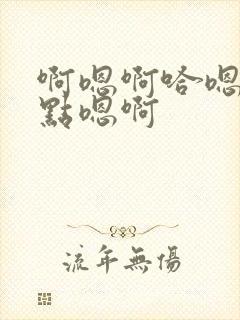 啊嗯啊哈嗯
點嗯啊
流年無傷